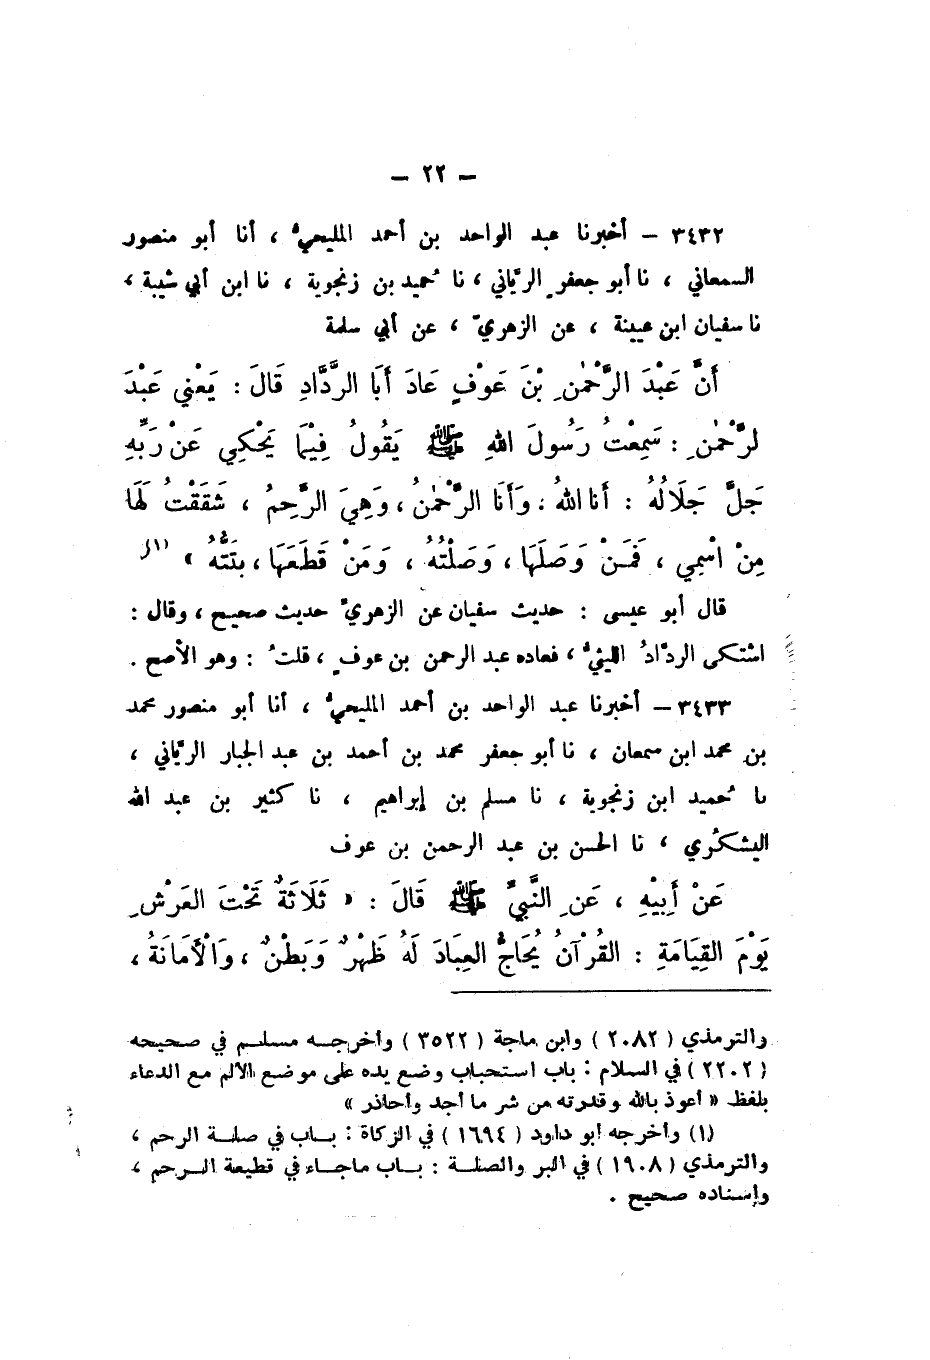 – ٢٢ –
٣٤٣٢ – أخبرنا عبد الواحد بن أحمد المليحيُّ ، أنا أبو منصور
السمعاني ، نا أبو جعفرٍ الريّاني ، نا حُميد بن زنجوية ، نا ابن أبي شيبة ،
نا سفيان ابن عيينة ، عن الزهريّ ، عن أبي سلمة
أَنَّ عَبْدَ الرَّحْمٰنِ بْنَ عَوْفٍ عَادَ أَبَا الرَّدَّادِ قَالَ : يَعْنِي عَبْدَ
لرَّحْمٰنِ : سَمِعْتُ رَسُولَ اللهِ ﷺ يَقُولُ فِيْمَا يَحْكِي عَنْ رَبِّهِ
جَلَّ جَلَالُهُ : أَنَا اللهُ ، وَأَنَا الرَّحْمٰنُ ، وَهِيَ الرَّحِمُ ، شَقَقْتُ لَهَا
مِنْ اسْمِي ، فَمَنْ وَصَلَهَا ، وَصَلْتُهُ ، وَمَنْ قَطَعَهَا ، بَتَتُّهُ » (١)
قال أبو عيسى : حديث سفيان عن الزهريّ حديث صحيح ، وقال :
اشتكى الردّادُ الليثيُّ ، فعاده عبد الرحمن بن عوفٍ ، قلتُ : وهو الأصح .
٣٤٣٣ – أخبرنا عبد الواحد بن أحمد المليحيُّ ، أنا أبو منصور محمد
بن محمد ابن سمعان ، نا أبو جعفر محمد بن أحمد بن عبد الجبار الريّاني ،
نا حُميد ابن زنجوية ، نا مسلم بن إبراهيم ، نا كثير بن عبد الله
اليشكُري ، نا الحسن بن عبد الرحمن بن عوف
عَنْ أَبِيْهِ ، عَنِ النَّبِيِّ ﷺ قَالَ : « ثَلَاثَةٌ تَحْتَ العَرْشِ
يَوْمَ القِيَامَةِ : القُرْآنُ يُحَاجُّ العِبَادَ لَهُ ظَهْرٌ وَبَطْنٌ ، وَالْأَمَانَةُ ،
والترمذي ( ٢٠٨٢ ) وابن ماجة ( ٣٥٢٢ ) وأخرجه مسلم في صحيحه
( ٢٢٠٢ ) في السلام : باب استحباب وضع يده على موضع الألم مع الدعاء
بلفظ « أعوذ بالله وقدرته من شر ما أجد وأحاذر »
(١) وأخرجه أبو داود ( ١٦٩٤ ) في الزكاة : باب في صلة الرحم ،
والترمذي ( ١٩٠٨ ) في البر والصلة : باب ماجاء في قطيعة الرحم ،
وإسناده صحيح .